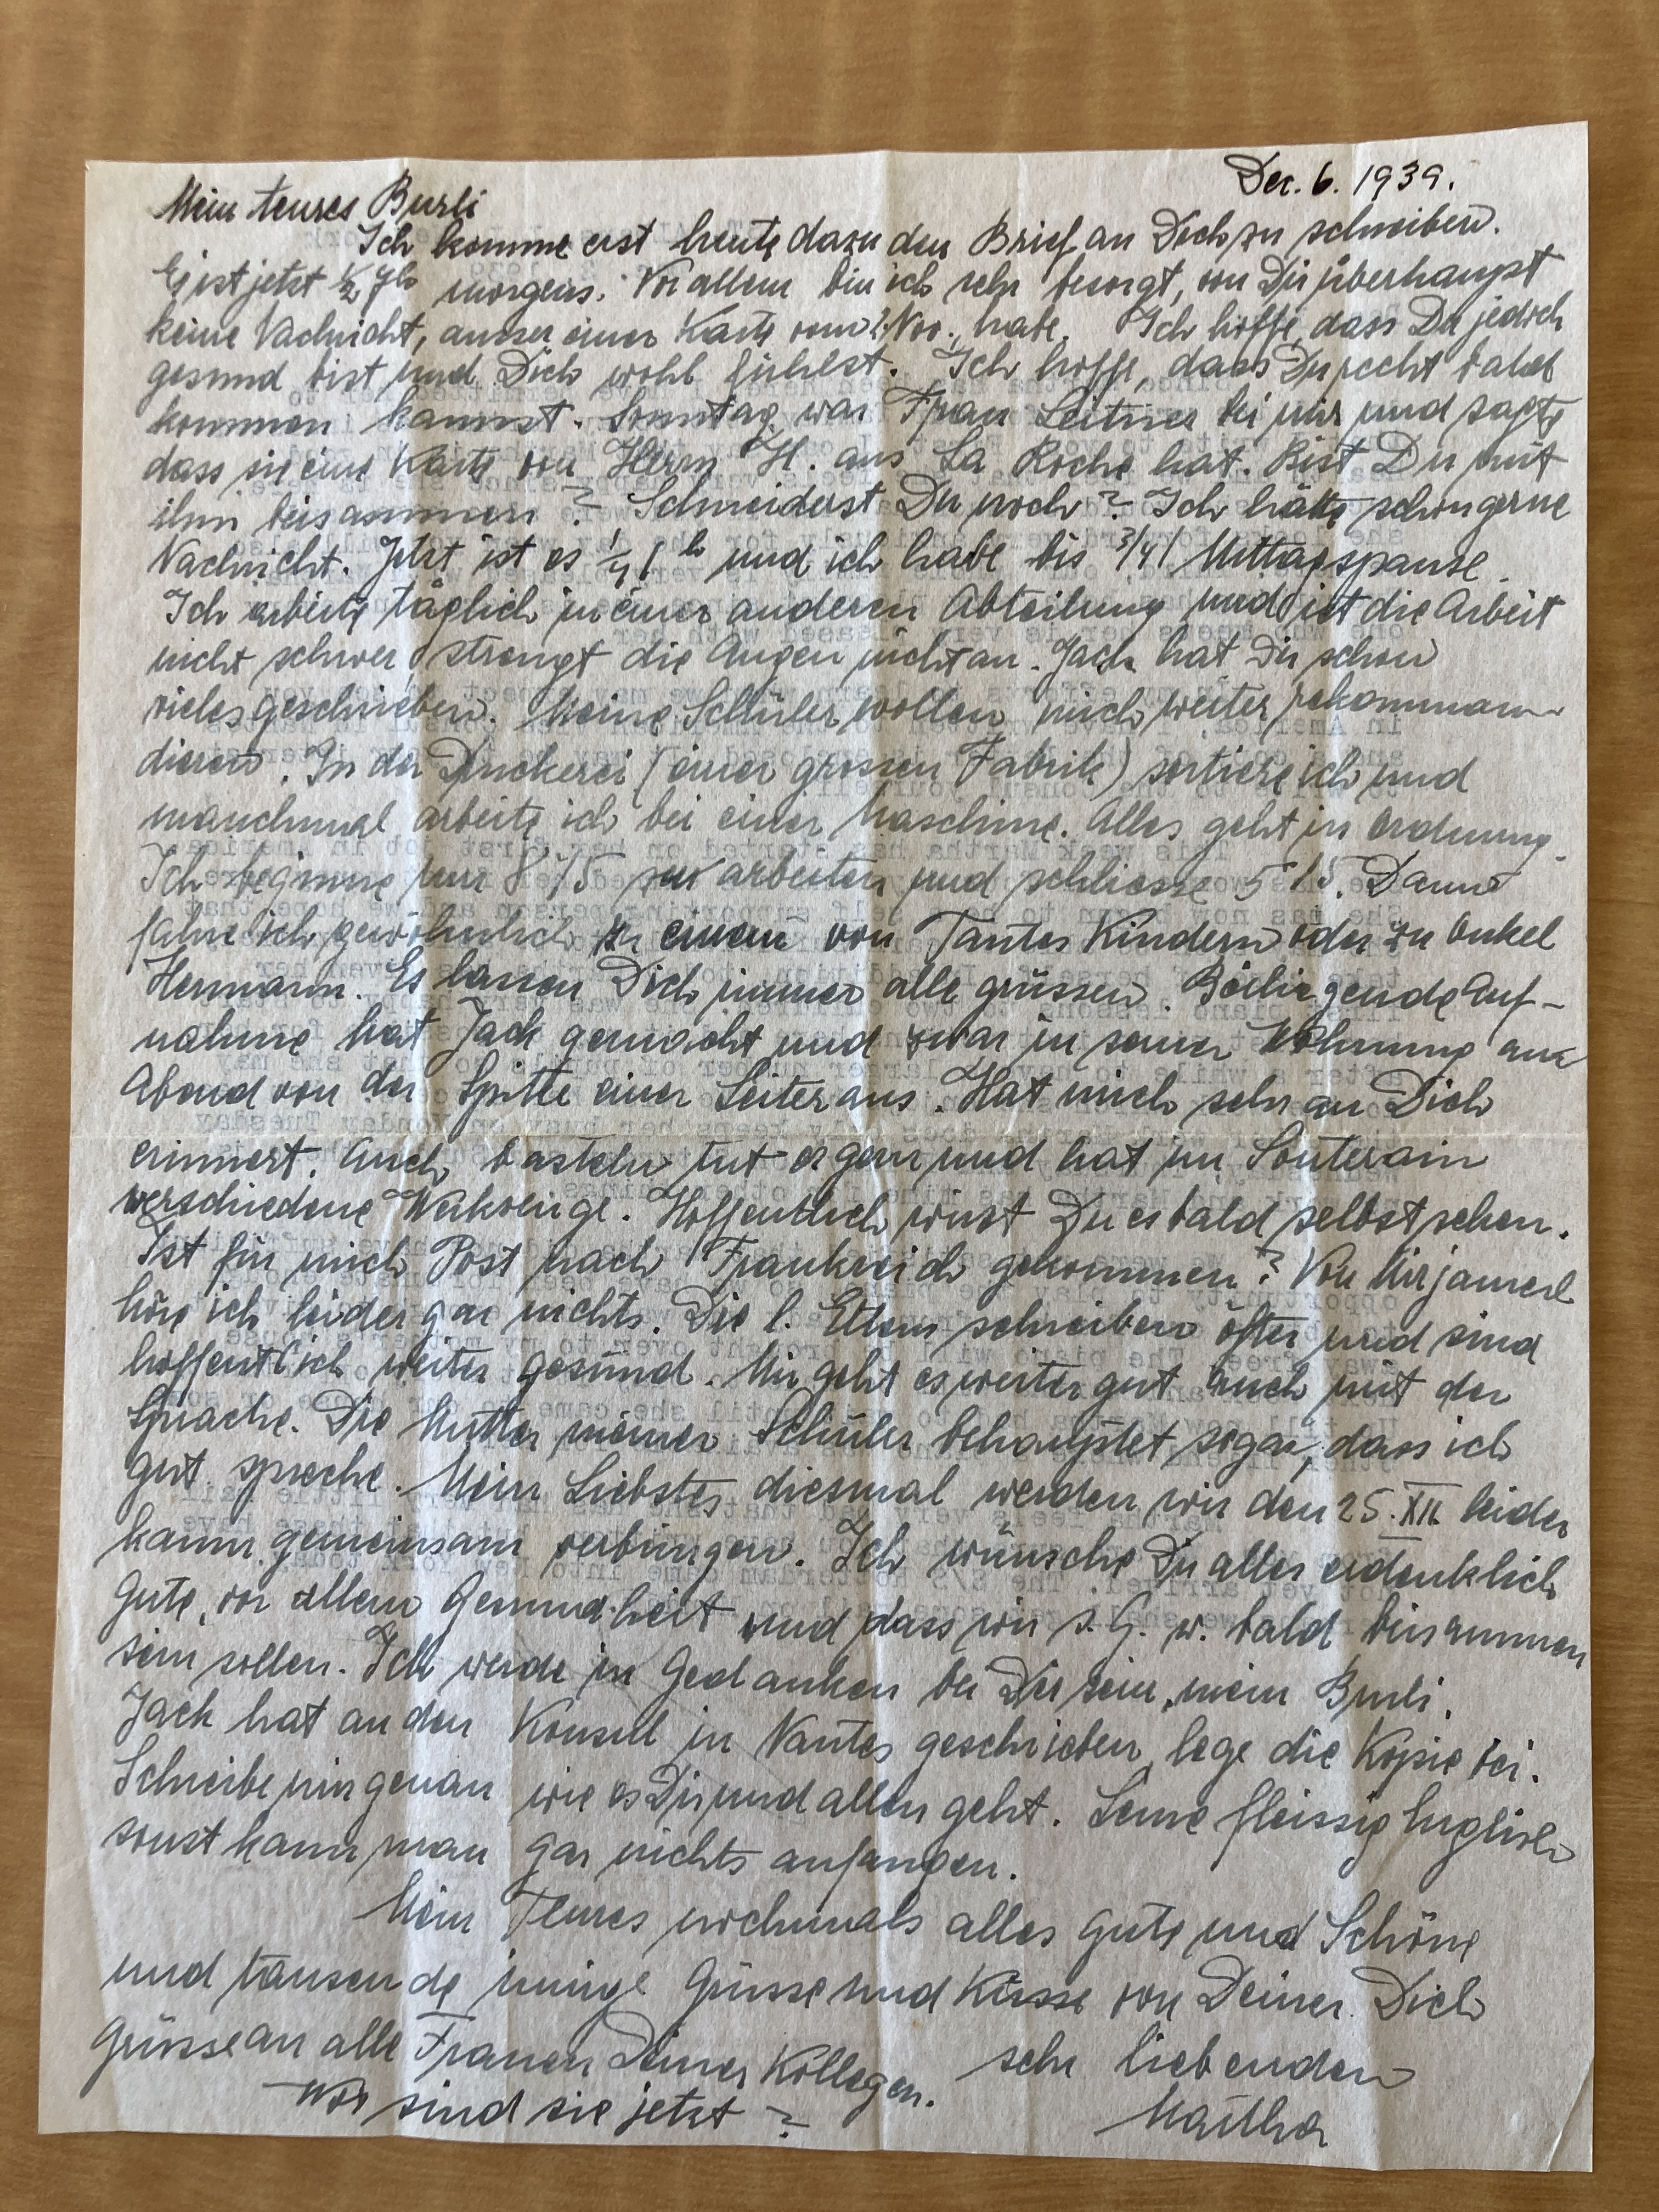 Dec. 6. 1939.
Mein teures Burli
Ich komme erst heute dazu den Brief an Dich zu schreiben.
Es ist jetzt ½ 7h morgens. Vor allem bin ich sehr besorgt, von Dir überhaupt
keine Nachricht, ausser einer Karte vom 2. Nov. habe. Ich hoffe, dass Du jedoch
gesund bist und Dich wohl fühlst. Ich hoffe, dass Du recht bald
kommen kannst. Sonntag war Frau Leitner bei mir und sagte
dass sie eine Karte von Herrn H. aus La Roche hat. Bist Du mit
ihm beisammen? Schneiderst Du noch? Ich hätte schon gerne
Nachricht. Jetzt ist es ¼ 1h und ich habe bis ¾ 1 Mittagspause.
Ich arbeite täglich in einer anderen Abteilung und ist die Arbeit
nicht schwer, strengt die Augen nicht an. Jack hat Dir schon
vieles geschrieben. Meine Schüler wollen mich weiter rekomman-
dieren. In der Druckerei (einer grossen Fabrik) sortiere ich und
manchmal arbeite ich bei einer Maschine. Alles geht in Ordnung.
Ich beginne um 8 15 zu arbeiten und schliesse 5 15. Dann
fahre ich gewöhnlich zu einem von Tantes Kindern oder zu Onkel
Hermann. Es lassen Dich immer alle grüssen. Beiliegende Auf-
nahme hat Jack gemacht und zwar in seiner Wohnung am
Abend von der Spitze einer Leiter aus. Hat mich sehr an Dich
erinnert. Auch basteln tut er gern und hat im Souterain
verschiedene Werkzeuge. Hoffentlich wirst Du es bald selbst sehen.
Ist für mich Post nach Frankreich gekommen? Von Mirjamerl
höre ich leider gar nichts. Die l. Eltern schreiben öfter und sind
hoffentlich weiter gesund. Mir geht es weiter gut auch mit der
Sprache. Die Mutter meiner Schüler behauptet sogar, dass ich
gut spreche. Mein Liebstes diesmal werden wir den 25. XII. leider
kaum gemeinsam verbringen. Ich wünsche Dir alles erdenklich
Gute, vor allem Gesundheit und dass wir s. G. w. bald beisammen
sein sollen. Ich werde in Gedanken bei Dir sein, mein Burli.
Jack hat an den Konsul in Nantes geschrieben, lege die Kopie bei.
Schreibe mir genau wie es Dir und allen geht. Lerne fleissig Englisch
sonst kann man gar nichts anfangen.
Mein Teures nochmals alles Gute und Schöne
und tausende innige Grüsse und Küsse von Deiner Dich
sehr liebenden
Martha
Grüsse an alle Frauen Deiner Kollegen.
Wo sind sie jetzt?